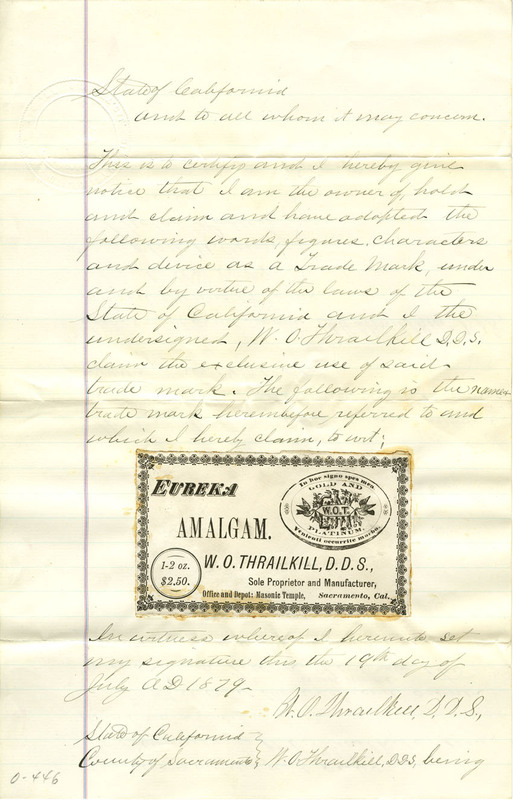 State of California
and to all whom it may concern.
This is to certify and I hereby give
notice that I am the owner of, hold
and claim and have adopted the
following words, figures, characters
and device as a Trade Mark, under
and by virtue of the laws of the
State of California and I the
undersigned, W. O. Thrailkill D.D.S.
claim the exclusive use of said
trade mark. The following is the name &
trade mark hereinbefore referred to and
which I hereby claim, to wit;
EUREKA
AMALGAM.
In hoc signo spes mea
GOLD AND
W.O.T.
PLATINUM.
Venienti occurrite morbo.
1-2 oz.
$2.50.
W. O. THRAILKILL, D. D. S.,
Sole Proprietor and Manufacturer,
Office and Depot: Masonic Temple, Sacramento, Cal.
In witness whereof I hereunto set
my signature this the 19th day of
July A D 1879-
W. O. Thrailkill, D. D. S.,
State of California
County of Sacramento } W. O Thrailkill, D.D.S, being
0-446